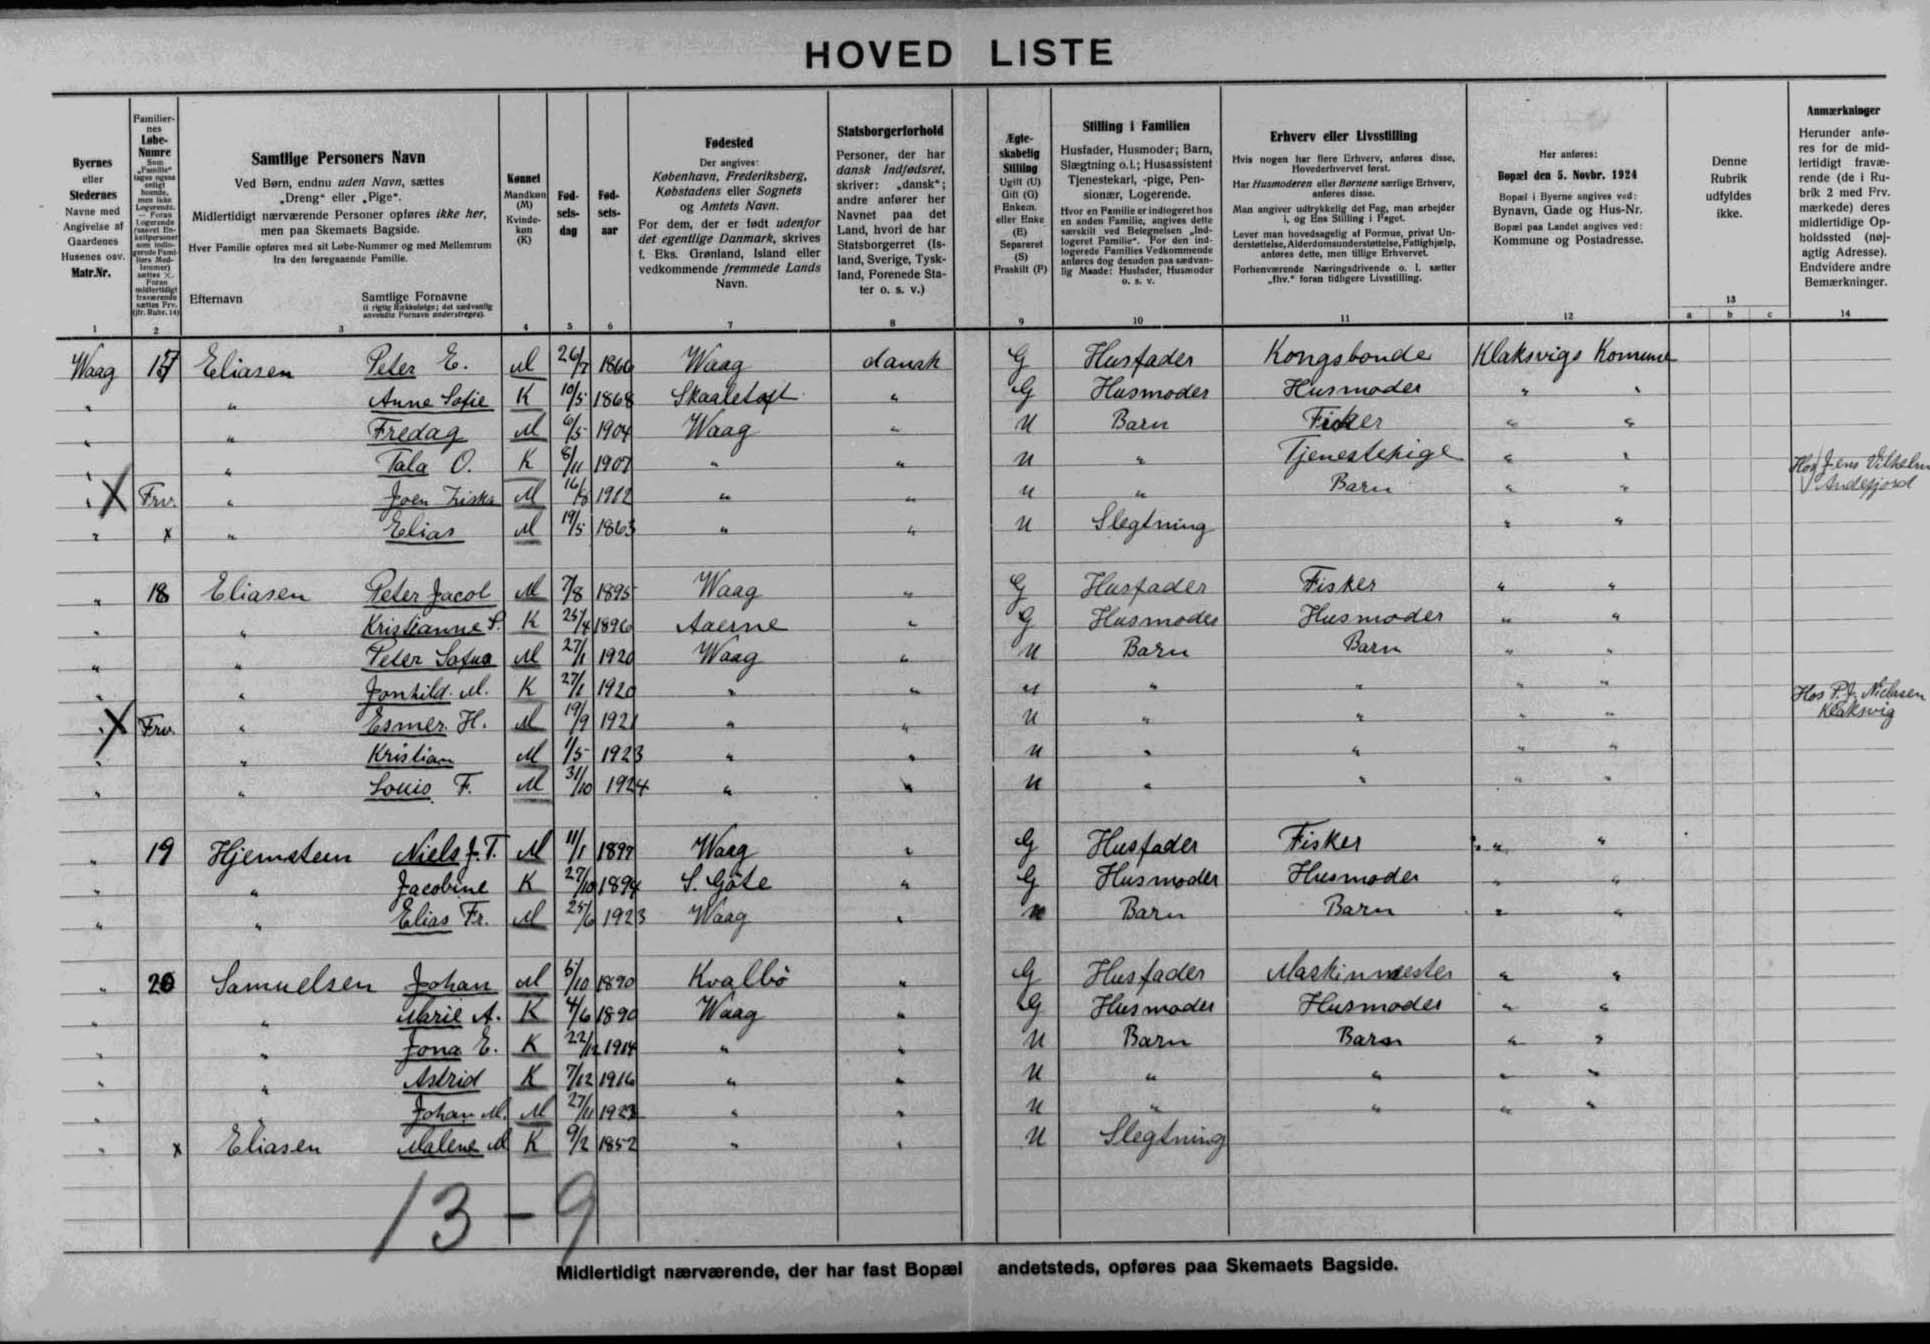 HOVED LISTE
Byernes
eller
Stedernes
Navne med
Angivelse af
Gaardenes
Husenes osv.
Matr.Nr.
1
Familier-
nes
Løbe-
Numre
2
Samtlige Personers Navn
Ved Børn, endnu uden Navn, sættes
„Dreng“ eller „Pige“.
Midlertidigt nærværende Personer opføres ikke her,
men paa Skemaets Bagside.
Hver Familie opføres med sit Løbe-Nummer og med Mellemrum
fra den foregaaende Familie.
Efternavn
Samtlige Fornavne
(i rigtig Rækkefølge; det sædvanlig
anvendte Fornavn understreges).
3
Kønnet
Mandkøn
(M)
Kvinde-
køn
(K)
4
Fød-
sels-
dag
5
Fød-
sels-
aar
6
Fødested
Der angives:
København, Frederiksberg,
Købstadens eller Sognets
og Amtets Navn.
For dem, der er født udenfor
det egentlige Danmark, skrives
f. Eks. Grønland, Island eller
vedkommende fremmede Lands
Navn.
7
Statsborgerforhold
Personer, der har
dansk Indfødsret,
skriver: „dansk“;
andre anfører her
Navnet paa det
Land, hvori de har
Statsborgerret (Is-
land, Sverige, Tysk-
land, Forenede Sta-
ter o. s. v.)
8
Ægte-
skabelig
Stilling
Ugift (U)
Gift (G)
Enkem.
eller Enke
(E)
Separeret
(S)
Fraskilt (F)
9
Stilling i Familien
Husfader, Husmoder; Barn,
Slægtning o.l.; Husassistent
Tjenestekarl, -pige, Pen-
sionær, Logerende.
Hvor en Familie er indlogeret hos
en anden Familie, angives dette
særskilt ved Betegnelsen „Ind-
logeret Familie“. For den ind-
logerede Families Vedkommende
anføres dog desuden paa sædvan-
lig Maade: Husfader, Husmoder
o. s. v.
10
Erhverv eller Livsstilling
Hvis nogen har flere Erhverv, anføres disse,
Hovederhvervet først.
Har Husmoderen eller Børnene særlige Erhverv,
anføres disse.
Man angiver udtrykkelig det Fag, man arbejder
i, og Ens Stilling i Faget.
Lever man hovedsagelig af Formue, privat Un-
derstøttelse, Alderdomsunderstøttelse, Fattighjælp,
anføres dette, men tillige Erhvervet.
Forhenværende Næringsdrivende o. l. sætter
„fhv.“ foran tidligere Livsstilling.
11
Her anføres:
Bopæl den 5. Novbr. 1924
Bopæl i Byerne angives ved:
Bynavn, Gade og Hus-Nr.
Bopæl paa Landet angives ved:
Kommune og Postadresse.
12
Denne
Rubrik
udfyldes
ikke.
13
a b c
Anmærkninger
Herunder anfø-
res for de mid-
lertidigt fravæ-
rende (de i Ru-
brik 2 med Frv.
mærkede) deres
midlertidige Op-
holdssted (nøj-
agtig Adresse).
Endvidere andre
Bemærkninger.
14
Waag 17 Eliasen Peter E. M 26/7 1866 Waag dansk G Husfader Kongsbonde Klaksvigs Komune
" " Anne Sofie K 10/5 1868 Skaaletoft " G Husmoder Husmoder " "
" " Fredag M 6/5 1904 Waag " U Barn Fisker " "
" " Tala O. K 8/11 1907 " " U " Tjenestepige " "
" X Frv. " Joen Ziska M 16/8 1912 " " U " Barn " " Hos Jens Vilhelm
Andefjord
" x " Elias M 19/5 1863 " " U Slegtning " "
" 18 Eliasen Peter Jacob M 7/8 1895 Waag " G Husfader Fisker " "
" " Kristianne S. K 25/4 1896 Aaerne " G Husmoder Husmoder " "
" " Peter M 27/1 1920 Waag " U Barn Barn " "
" " Jonhild M. K 27/1 1920 " " U " " " "
" X Frv. " Esmer H. M 19/9 1921 " " U " " " " Hos P.J. Niclasen
Klaksvig
" " Kristian M 1/5 1923 " " U " " " "
" " Louis F. M 31/10 1924 " " U " " " "
" 19 Hjemstein Niels J. T. M 11/1 1897 Waag " G Husfader Fisker " "
" " Jacobine K 27/10 1894 S. Göte " G Husmoder Husmoder " "
" " Elias Fr. M 25/6 1923 Waag " U Barn Barn " "
" 20 Samuelsen Johan M 5/10 1890 Kvalbö " G Husfader Maskinmester " "
" " Marie A. K 4/6 1890 Waag " G Husmoder Husmoder " "
" " Jona E. K 22/12 1914 " " U Barn Barn " "
" " Astrid K 7/12 1916 " " U " " " "
" " Johan M. M 27/11 1923 " " U " " " "
" x Eliasen Malene M K 9/2 1852 " " U Slegtning
13 - 9
Midlertidigt nærværende, der har fast Bopæl andetsteds, opføres paa Skemaets Bagside.